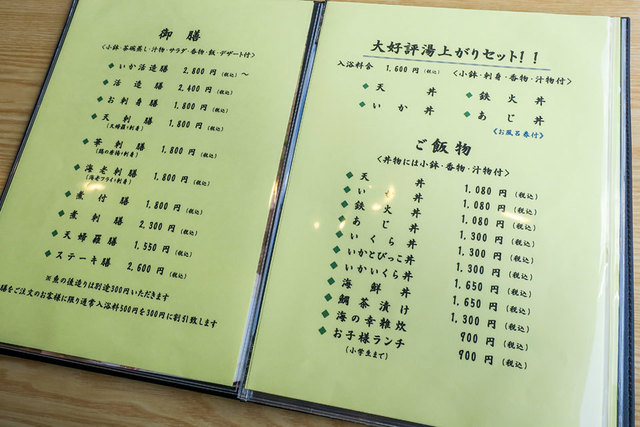 御膳
<小鉢・茶碗蒸し・汁物・サラダ・香物・飯・デザート付>
◆いか活造膳 2,800円(税込)～
◆活造膳 2,400円(税込)
◆お刺身膳 1,800円(税込)
◆天刺膳 1,800円(税込)
(天婦羅+刺身)
◆華刺膳 1,800円(税込)
◆海老刺膳 1,800円(税込)
(海老フライ+刺身)
◆煮付膳 1,800円(税込)
◆煮刺膳 2,300円(税込)
◆天婦羅膳 1,550円(税込)
◆ステーキ膳 2,600円(税込)
※魚の後造りは別途300円いただきます
膳をご注文のお客様に限り通常入浴料500円を300円に割引致します
大好評湯上がりセット!!
入浴料含 1,600円(税込) <小鉢・刺身・香物・汁物付>
◆天丼 ◆鉄火丼
◆いか丼 ◆あじ丼
《お風呂券付》
ご飯物
<丼物には小鉢・香物・汁物付>
◆天丼 1,080円(税込)
◆いか丼 1,080円(税込)
◆鉄火丼 1,080円(税込)
◆あじ丼 1,300円(税込)
◆いくら丼 1,300円(税込)
◆いかとびっこ丼 1,300円(税込)
◆いかいくら丼 1,650円(税込)
◆海鮮丼 1,650円(税込)
◆鯛茶漬け 1,300円(税込)
◆海の幸雑炊 900円(税込)
◆お子様ランチ 900円(税込)
(小学生まで)